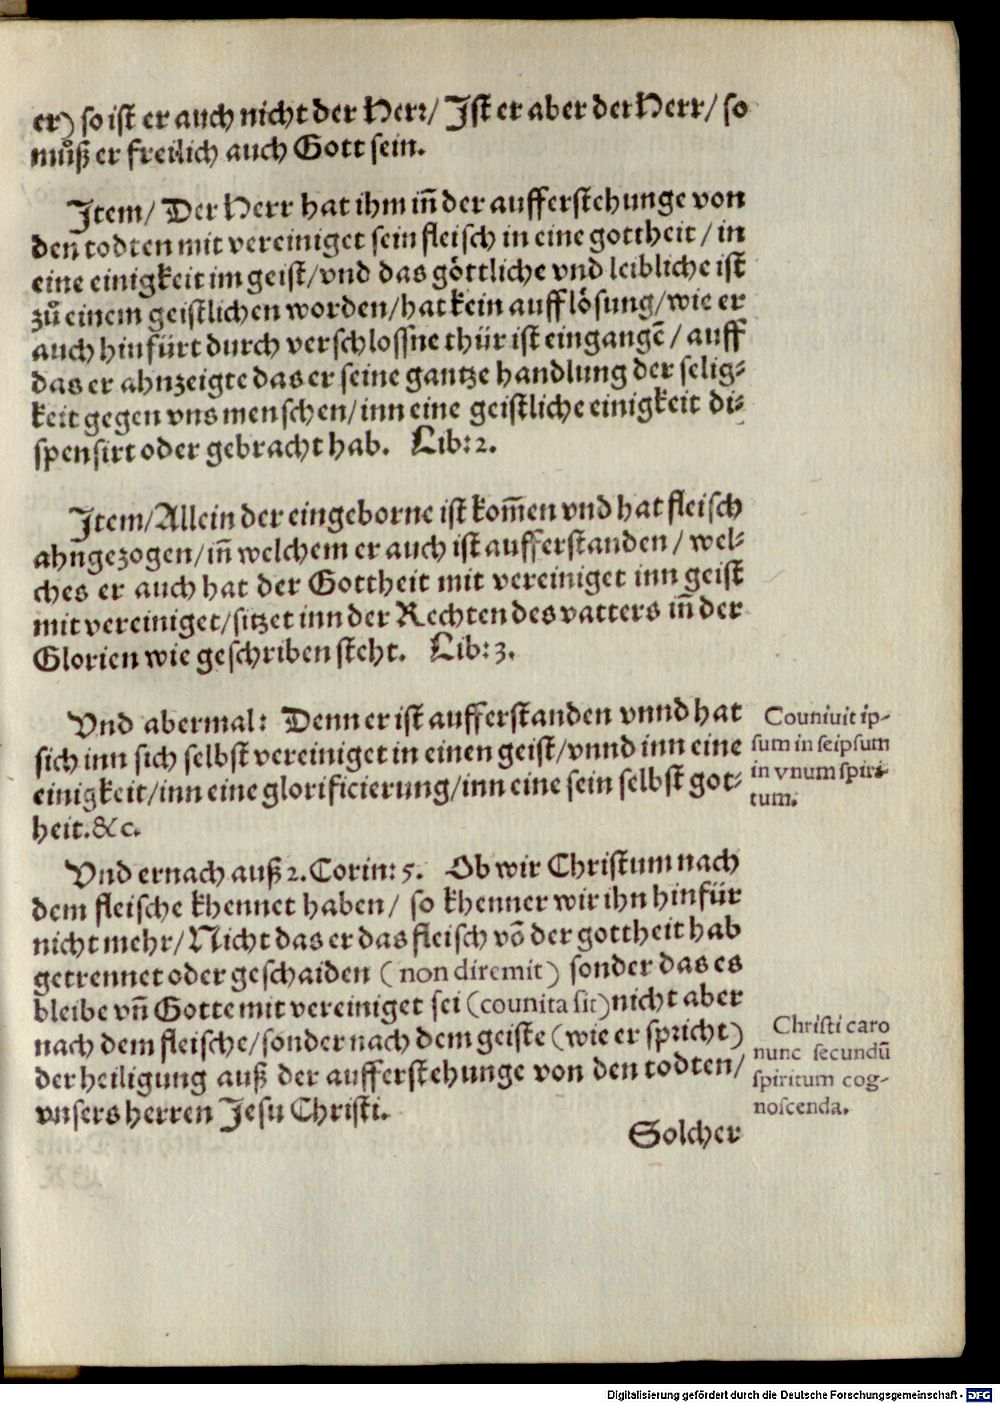 er) so ist er auch nicht der Herr/ Jst er aber der Herr/ so
muͦß er freilich auch Gott sein.
Jtem/ Der Herr hat ihm iñ der aufferstehunge von
den todten mit vereiniget sein fleisch in eine gottheit / in
eine einigkeit im geist/vnd das göttliche vnd leibliche ist
zuͦ einem geistlichen worden/hat kein aufflösung/wie er
auch hinfürt durch verschlossne thür ist eingangē/ auff
das er ahnzeigte das er seine gantze handlung der selig-
keit gegen vns menschen/inn eine geistliche einigkeit di-
spensirt oder gebracht hab. Lib: 2.
Jtem/Allein der eingeborne ist kom̃en vnd hat fleisch
ahngezogen/iñ welchem er auch ist aufferstanden / wel-
ches er auch hat der Gottheit mit vereiniget inn geist
mit vereiniget/sitzet inn der Rechten des vatters iñ der
Glorien wie geschriben steht. Lib: 3.
Vnd abermal: Denn er ist aufferstanden vnnd hat
sich inn sich selbst vereiniget in einen geist/vnnd inn eine
einigkeit/inn eine glorificierung/inn eine sein selbst got-
heit.&c.
Couniuit ip-
sum in seipsum
in vnum spiri-
tum.
Vnd ernach auß 2. Corin: 5. Ob wir Christum nach
dem fleische khennet haben/ so khenner wir ihn hinfür
nicht mehr/Nicht das er das fleisch võ der gottheit hab
getrennet oder geschaiden (non diremit) sonder das es
bleibe vñ Gotte mit vereiniget sei (counita sit)nicht aber
nach dem fleische/sonder nach dem geiste (wie er spricht)
der heiligung auß der aufferstehunge von den todten/
vnsers herren Jesu Christi.
Christi caro
nunc secundū
spiritum cog-
noscenda.
Solcher
Digitalisierung gefördert durch die Deutsche Forschungsgemeinschaft - DFG